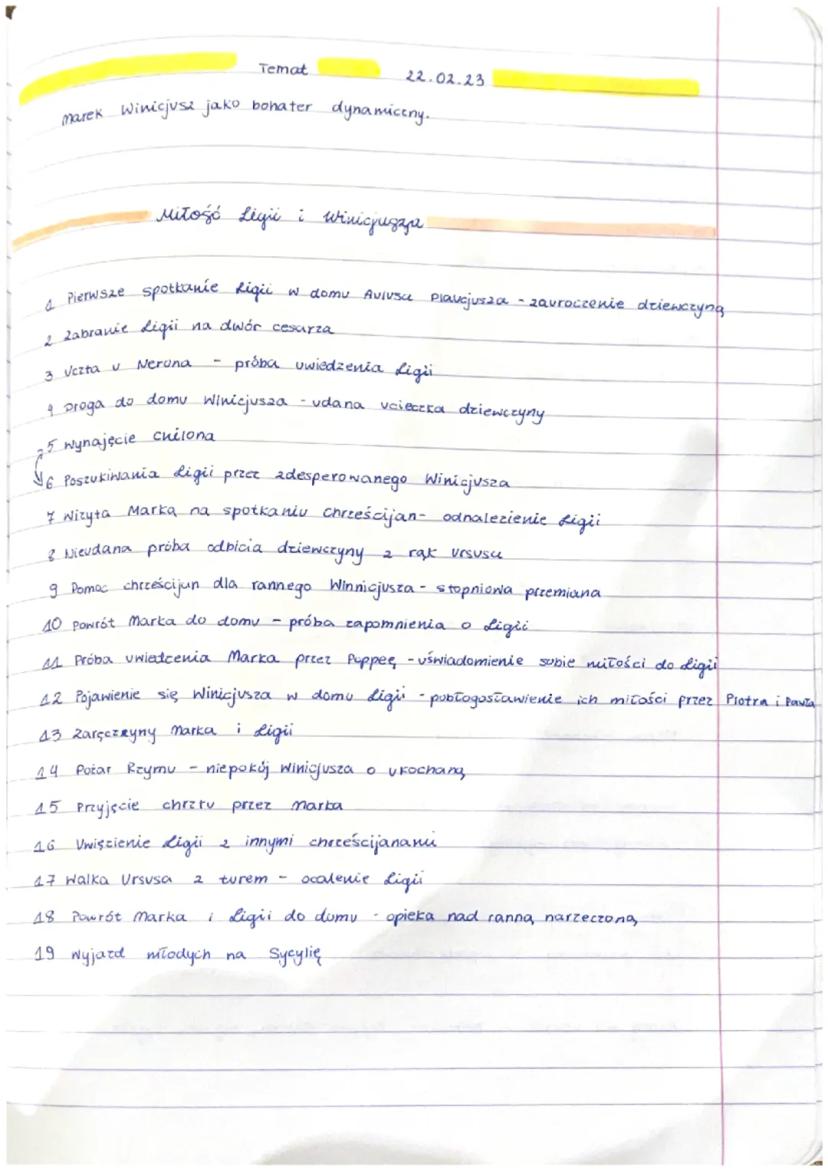 Temat 22.02.23
Marek Winicjusz jako bohater dynamiczny.
Miłość Ligii i Winicjusza
1 Pierwsze spotkanie Ligii w domu Aulusa Plaucjusza - zauroczenie dziewczyną
2 Zabranie Ligii na dwór cesarza
3 Uczta u Nerona - próba uwiedzenia Ligii
4 Droga do domu Winicjusza - udana ucieczka dziewczyny
5 Wynajęcie Chilona
6 Poszukiwania Ligii przez zdesperowanego Winicjusza
7 Wizyta Marka na spotkaniu chrześcijan - odnalezienie Ligii
8 Nieudana próba odbicia dziewczyny z rąk Ursusa
9 Pomoc chrześcijan dla rannego Winnicjusza - stopniowa przemiana
10 Powrót Marka do domu - próba zapomnienia o Ligii
11 Próba uwiedzenia Marka przez Poppeę - uświadomienie sobie miłości do Ligii
12 Pojawienie się Winicjusza w domu Ligii - pobłogosławienie ich miłości przez Piotra i Pawła
13 Zaręczyny Marka i Ligii
14 Pożar Rzymu - niepokój Winicjusza o ukochaną
15 Przyjęcie chrztu przez Marka
16 Uwięzienie Ligii z innymi chrześcijanami
17 Walka Ursusa z turem - ocalenie Ligii
18 Powrót Marka i Ligii do domu - opieka nad ranną narzeczoną
19 Wyjazd młodych na Sycylię